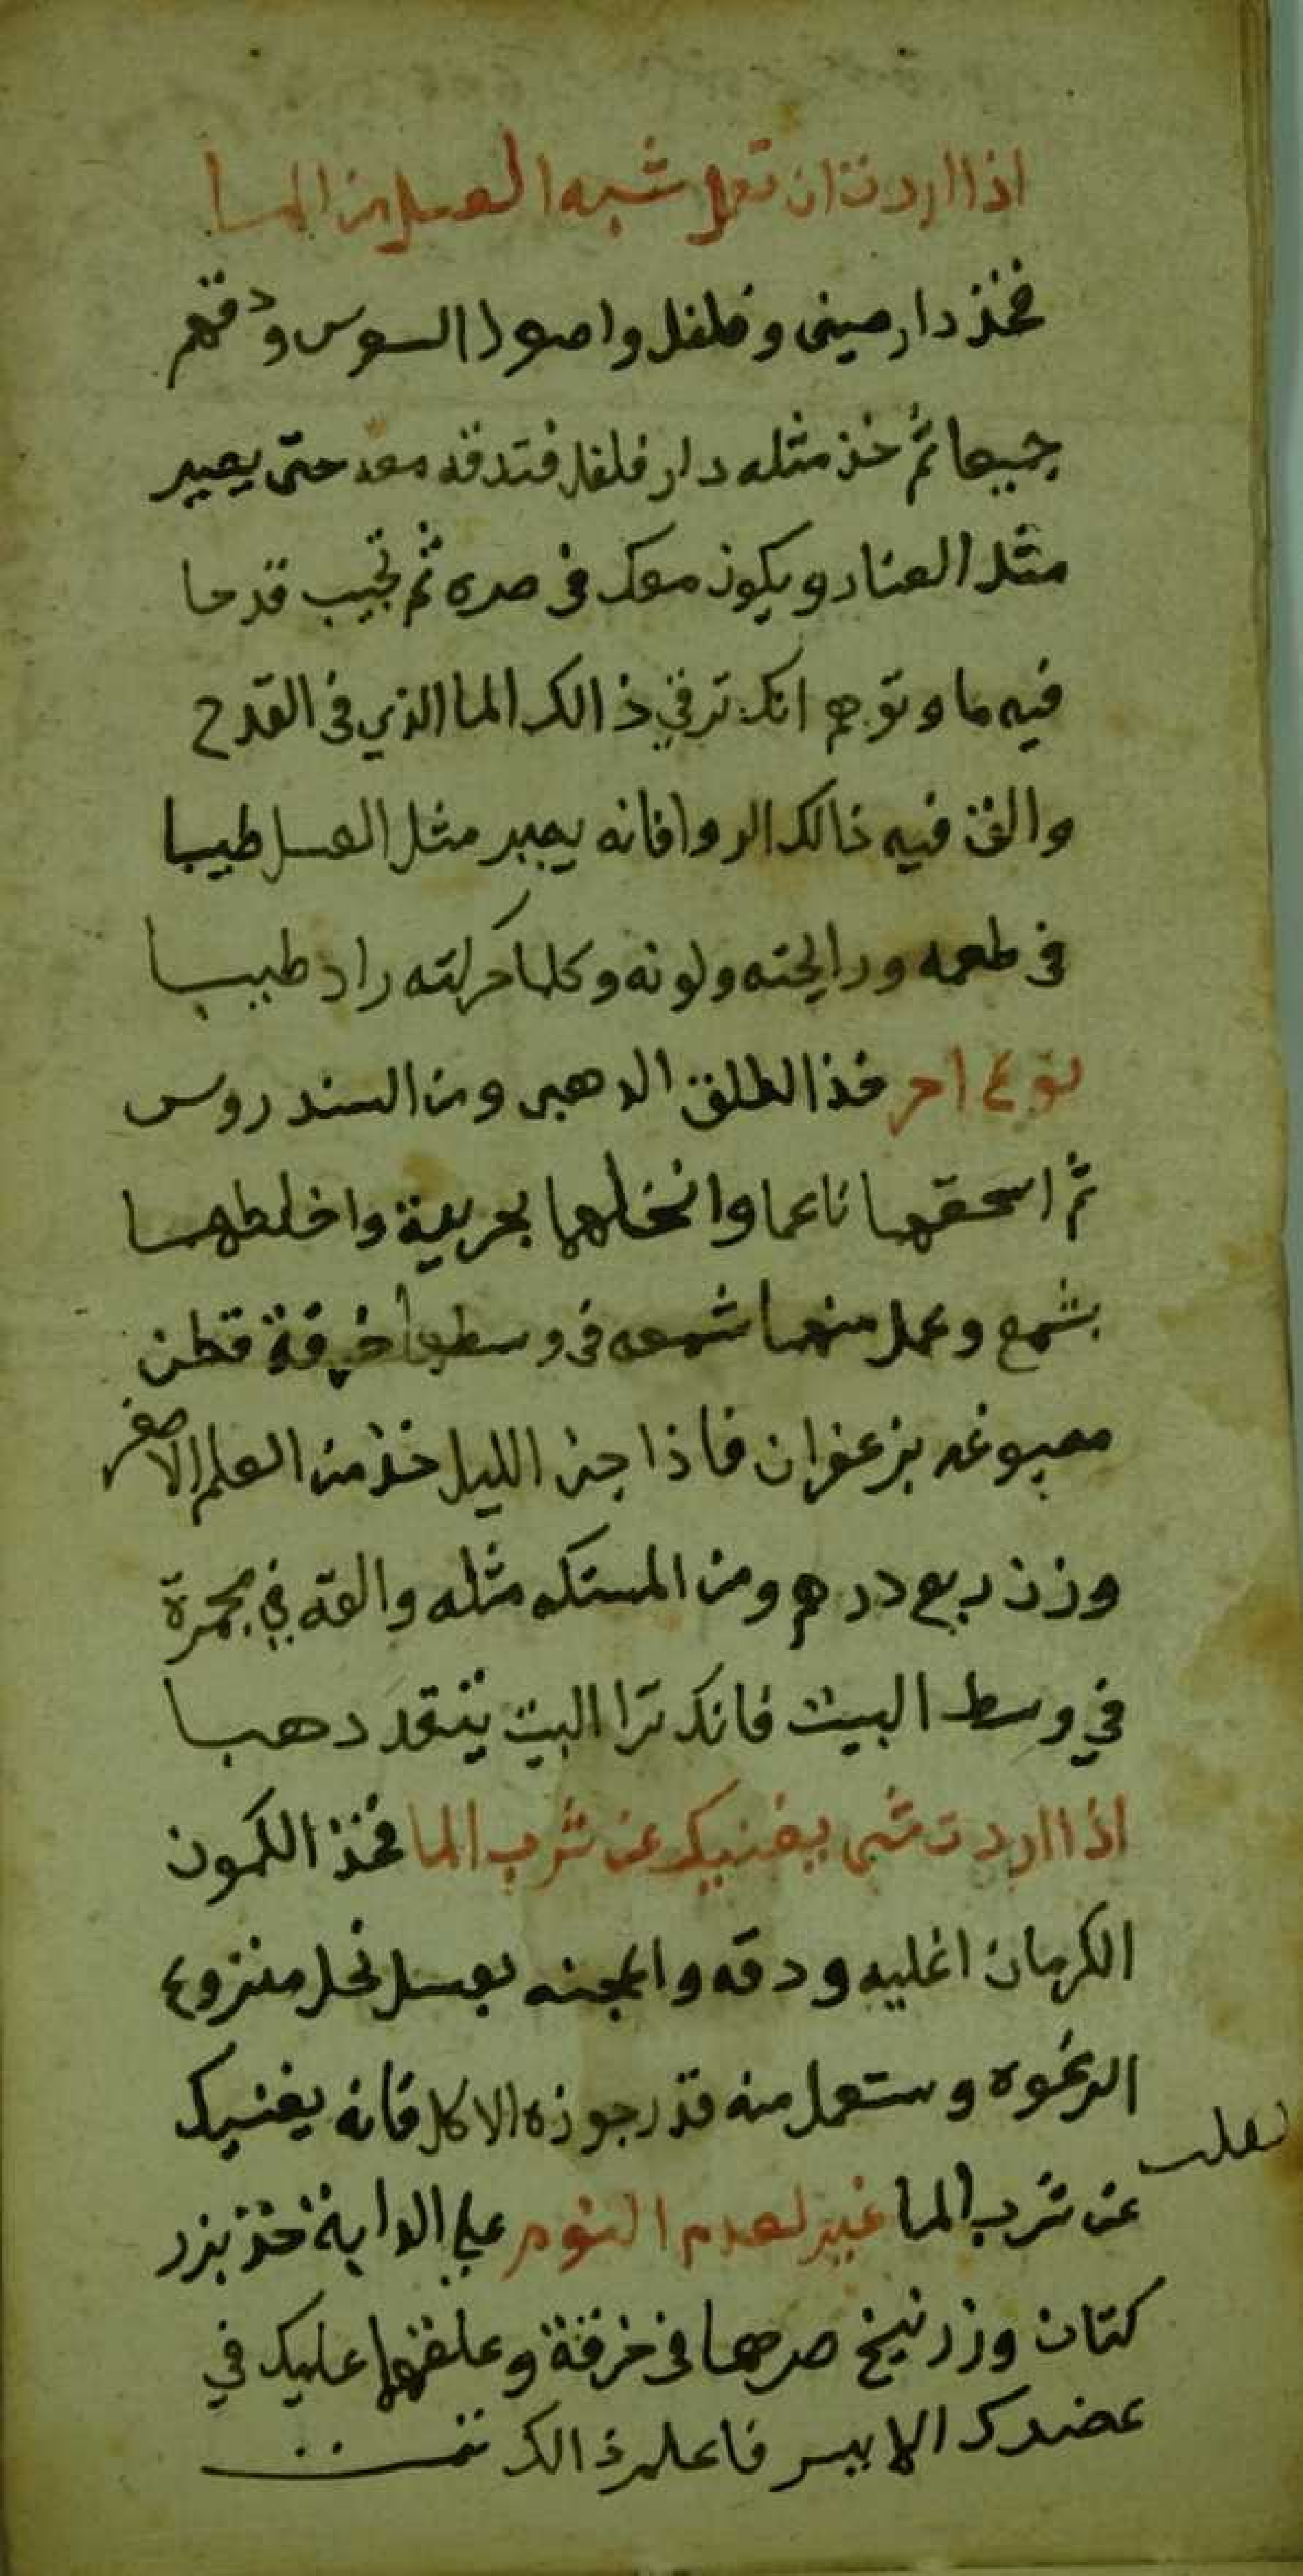 اذا اردت ان تعمل شبه العسل من الما
فخذ دار صينى وفلفل واصول السوس ودقهم
جميعا ثم خذ مثله دار فلفل فتدقه معه حتى يصير
مثل الغبار ويكون معك فى صره ثم تجيب قدحا
فيه ما وتوهم انك ترقي ذالك الما الذي فى القدح
والقى فيه ذالك الدوا فانه يصير مثل العسل طيبا
فى طعمه ورايحته ولونه وكلما حركته زاد طيبا
نوع اخر خذ الطلق الدهبى ومن السندروس
ثم اسحقهما ناعما وانخلهما بحريرة واخلطهما
بشمع وعمل منهما شمعه فى وسطها خرقة قطن
مصبوغه بزعفران فاذا جن الليل خذ من العلم الاصفر
وزن ربع درهم ومن المستكه مثله والقه في مجمرة
في وسط البيت فانك ترا البيت يتقد دهبا
اذا اردت شى يغنيك عن شرب الما فخذ الكمون
الكرمان اغليه ودقه واعجنه بعسل نحل منزوع
الرغوه وستعمل منه قدر جوزه الاكل فانه يغنيك
عن شرب الما غيره لعدم النوم على الدابة خذ بزر
كتان وزرنيخ صرهما فى خرقة وعلقهما عليك في
عضدك الايسر فاعلم ذالك تمت